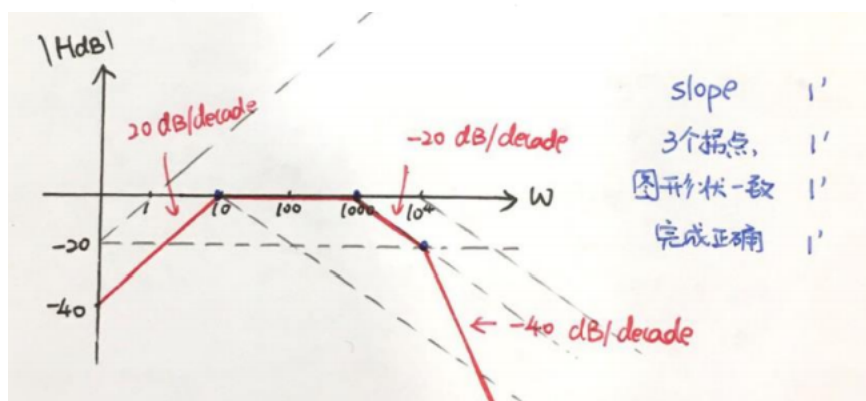 |HdB|
20 dB/decade
-20 dB/decade
1 10 100 1000 10⁴ W
-20
-40
← -40 dB/decade
slope 1'
3个拐点, 1'
图形状一致 1'
完成正确 1'